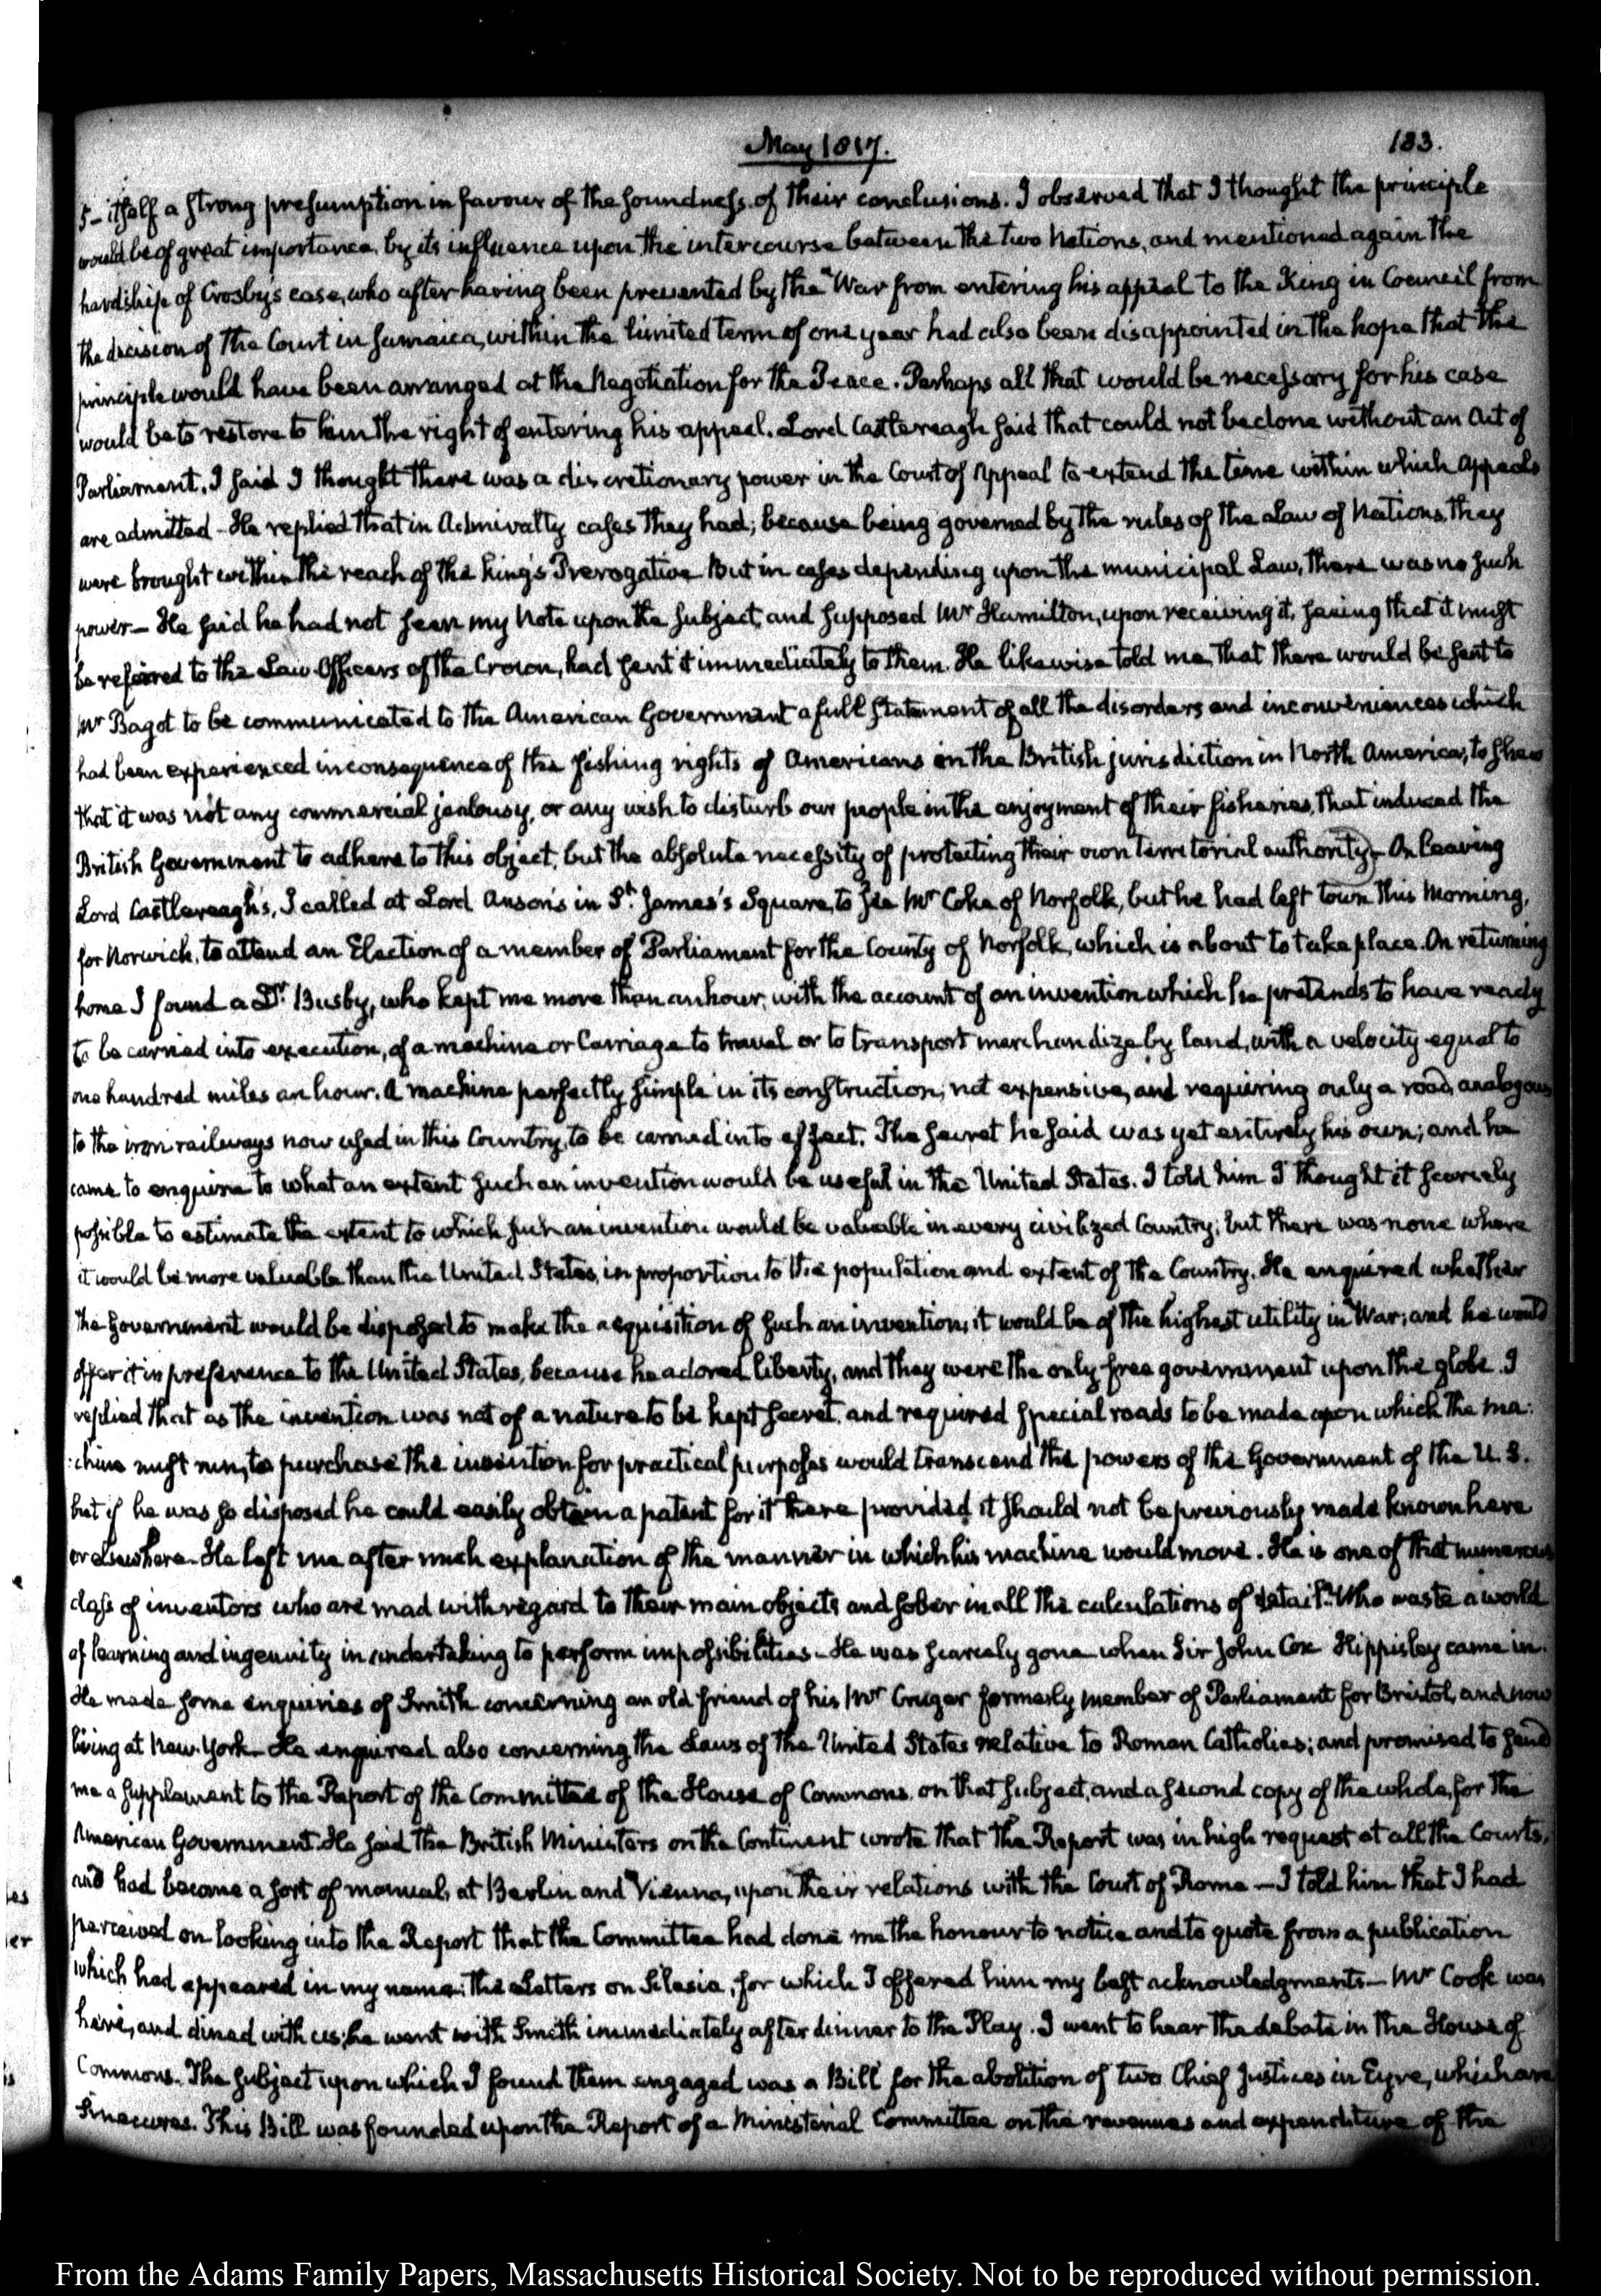 May 1817.
183.
5- itself a strong presumption in favour of the soundness of their conclusions. I observed that I thought the principle
would be of great importance, by its influence upon the intercourse between the two Nations, and mentioned again the
hardship of Crosby's case, who after having been prevented by the War from entering his appeal to the King in Council from
the decision of the Court in Jamaica, within the limited term of one year had also been disappointed in the hope that the
principle would have been arranged at the Negotiation for the Peace. Perhaps all that would be necessary for his case
would be to restore to him the right of entering his appeal. Lord Castlereagh said that could not be done without an Act of
Parliament. I said I thought there was a discretionary power in the Court of Appeal to extend the time within which Appeals
are admitted - He replied that in Admiralty cases they had; because being governed by the rules of the Law of Nations, they
were brought within the reach of the King's Prerogative But in cases depending upon the municipal Law, there was no such
power - He said he had not seen my Note upon the subject, and supposed Mr Hamilton, upon receiving it, seeing that it must
be referred to the Law Officers of the Crown, had sent it immediately to them. He likewise told me, that there would be sent to
Mr Bagot to be communicated to the American Government a full statement of all the disorders and inconveniences which
had been experienced in consequence of the fishing rights of Americans in the British jurisdiction in North America, to shew
that it was not any commercial jealousy, or any wish to disturb our people in the enjoyment of their fisheries, that induced the
British Government to adhere to this object, but the absolute necessity of protecting their own territorial authority - On leaving
Lord Castlereagh's, I called at Lord Anson's in St. James's Square, to see Mr Coke of Norfolk, but he had left town this Morning,
for Norwich, to attend an Election of a member of Parliament for the County of Norfolk, which is about to take place. On returning
home I found a Dr. Busby, who kept me more than an hour, with the account of an invention which he pretends to have ready
to be carried into execution, of a machine or Carriage to travel or to transport merchandize by land, with a velocity equal to
one hundred miles an hour. A machine perfectly simple in its construction, not expensive, and requiring only a road, analogous
to the iron railways now used in this Country, to be carried into effect. The secret he said was yet entirely his own; and he
came to enquire to what an extent such an invention would be useful in the United States. I told him I thought it scarcely
possible to estimate the extent to which such an invention would be valuable in every civilized Country; but there was none where
it would be more valuable than the United States, in proportion to the population and extent of the Country. He enquired whether
the Government would be disposed to make the acquisition of such an invention; it would be of the highest utility in War; and he would
offer it in preference to the United States, because he adored liberty, and they were the only free government upon the globe. I
replied that as the invention was not of a nature to be kept secret, and required special roads to be made upon which the ma:
:chine must run, to purchase the invention for practical purposes would transcend the powers of the Government of the U.S.
but if he was so disposed he could easily obtain a patent for it there provided it should not be previously made known here
or elsewhere. He left me after much explanation of the manner in which his machine would move. He is one of that numerous
class of inventors who are mad with regard to their main objects and sober in all the calculations of detail. Who waste a world
of learning and ingenuity in undertaking to perform impossibilities - He was scarcely gone when Sir John Cox Hippisley came in.
He made some enquiries of Smith concerning an old friend of his Mr Cruger formerly member of Parliament for Bristol, and now
living at New York - He enquired also concerning the Laws of the United States relative to Roman Catholics; and promised to send
me a supplement to the Report of the Committee of the House of Commons, on that subject, and a second copy of the whole, for the
American Government. He said the British Ministers on the Continent wrote that the Report was in high request at all the Courts,
and had become a sort of manual, at Berlin and Vienna, upon their relations with the Court of Rome - I told him that I had
perceived on looking into the Report that the Committee had done me the honour to notice and to quote from a publication
which had appeared in my name: the Letters on Silesia, for which I offered him my best acknowledgments - Mr Cook was
here, and dined with us; he went with Smith immediately after dinner to the Play. I went to hear the debate in the House of
Commons. The subject upon which I found them engaged was a Bill for the abolition of two Chief Justices in Eyre, which are
Sinecures. This Bill was founded upon the Report of a Ministerial Committee on the revenues and expenditure of the
From the Adams Family Papers, Massachusetts Historical Society. Not to be reproduced without permission.